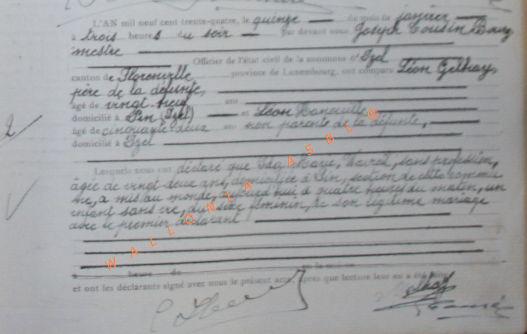 L'AN mil neuf cent trente-quatre, le quinze du mois de janvier
à trois heures du soir par devant nous Joseph Cousin Bourg
mestre
Officier de l'état civil de la commune d' Izel
canton de Florenville province de Luxembourg, ont comparu Léon
frère de la défunte,
âgé de vingt neuf ans
domicilié à Pin (Izel) et Léon
âgé de cinquante deux ans non parente de la défunte,
domicilié à Izel
Lesquels nous ont déclaré que Ida Marie, sans profession,
âgée de vingt-deux ans, domiciliée à Pin, section de cette commu
ne, a mis au monde, aujourd'hui à quatre heures du matin, un
enfant sans vie, du sexe féminin, de son légitime mariage
avec le premier déclarant
à heure du
et ont les déclarants signé avec nous le présent acte, après que lecture leur en a été
WALLONIA ASBL